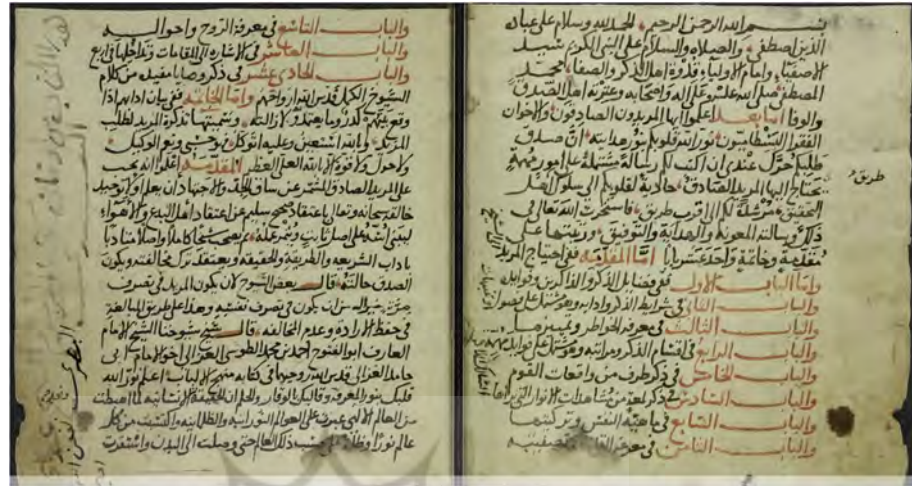 بسم الله الرحمن الرحيم الحمد لله وسلام على عباده
الذين اصطفى والصلاه والسلام على النبي الكريم سيد
الاصفياء وامام الاولياء قدوة اهل الذكر والصفا محمد
المصطفى صلى الله عليه وعلى اله واصحابه وعترته اهل الصدق
والوفا اما بعد اعلموا ايها المريدون الصادقون والاخوان
الفقرا البسطاميون نور الله قلوبكم بنور هدايته ان صدق
طلبكم حرك عندي ان اكتب لكم رسالة مشتملة على امور مهمة
يحتاج اليها المريد الصادق حادية لقلوبكم الى سلوك اهل
طريق
التحقيق مرشدة لكم الى اقرب طريق فاستخرت الله تعالى في
ذلك وسالته المعونة والهداية والتوفيق ورتبتها على
مقدمة وخاتمة واحد عشر بابا اما المقدمه ففي احتياج المريد
واما الباب الاول ففي فضايل الذكر والذاكرين وفوايده
والباب الثاني في شرايط الذكر وادابه وهو مشتمل على فصول
والباب الثالث في معرفة الخواطر وتمييزها
والباب الرابع في اقسام الذكر ومراتبه وهو مشتمل على فوايد
والباب الخامس في ذكر طرف من واقعات القوم
والباب السادس في ذكر لمعة من مشاهدات الانوار التي
والباب السابع في ماهية النفس وتزكيتها
والباب الثامن في معرفة القلب وتصفيته
والباب التاسع في معرفة الروح واحواله
والباب العاشر في الاشاره الى المقامات وتداخلها في
والباب الحادي عشر في ذكر وصايا مفيده من كلام
الشيوخ الكمل قدس الله ارواحهم واما الخاتمه ففي بيان
المزيد وبالله استعين وعليه اتوكل فهو حسبي ونعم الوكيل
ولا حول ولا قوة الا بالله العلي العظيم المقدمه اعلموا انه يجب
على المريد الصادق المشمر عن ساق الجد والاجتهاد ان يعلم اولا توحيد
خالقه سبحانه وتعالى باعتقاد صحيح سليم عن اعتقاد اهل البدع والاهواء
ليبني اسه على اصل ثابت ويثمر عمله ثم يصحب شيخا كاملا واصلا متادبا
باداب الشريعه والطريقة والحقيقه ويعتقد ترك مخالفته ويكون
الصدق حالته قال بعض الشيوخ لان يكون المريد في تصرف
خير له من ان يكون في تصرف نفسه وهذا على طريق المبالغة
في حفظ الاراده وعدم المخالفه قال شيخ شيوخنا الشيخ الامام
العارف ابو الفتوح احمد بن محمد الطوسي الغزالي اخو الامام ابي
حامد الغزالي قدس الله روحهما في كتابه منهج الالباب اعلم نور الله
قلبك بنور المعرفة
من العالم الالهي عبرت على العوالم النورانيه والظلمانيه واكتسبت من كل
عالم نورا وظلمة بحسب ذلك العالم حتى وصلت الى البدن واستقرت